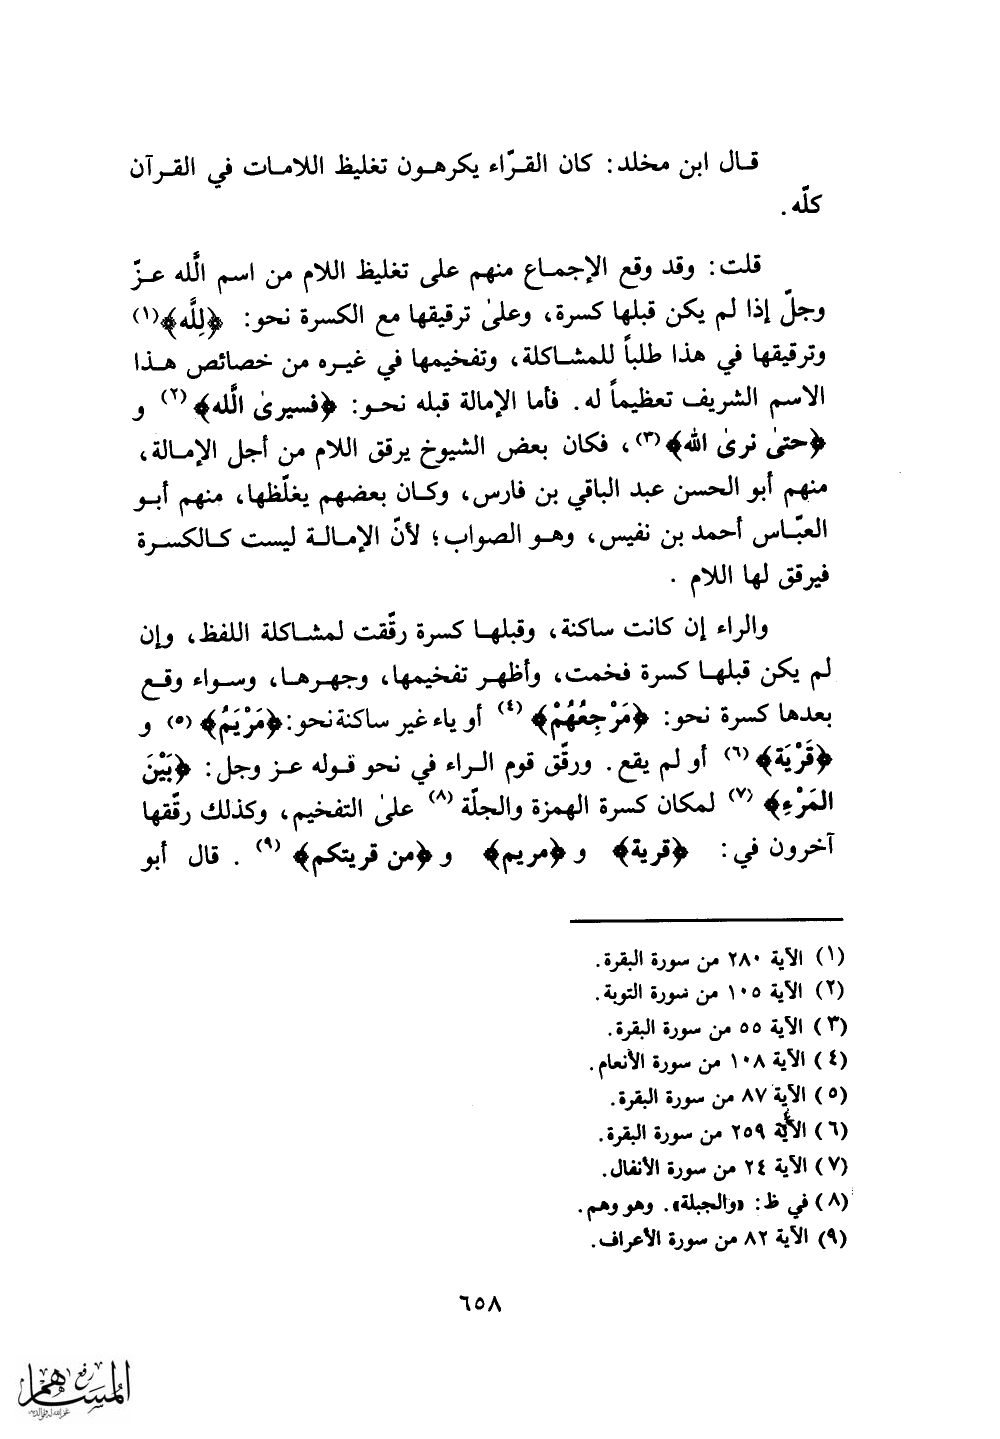 قال ابن مخلد: كان القرّاء يكرهون تغليظ اللامات في القرآن
كلّه.
قلت: وقد وقع الإجماع منهم على تغليظ اللام من اسم الَّله عزّ
وجلّ إذا لم يكن قبلها كسرة، وعلىٰ ترقيقها مع الكسرة نحو: ﴿لِلَّه﴾(١)
وترقيقها في هذا طلباً للمشاكلة، وتفخيمها في غيره من خصائص هذا
الاسم الشريف تعظيماً له. فأما الإمالة قبله نحو: ﴿فسيرىٰ الَّله﴾ (٢) و
﴿حتىٰ نرىٰ الله﴾(٣)، فكان بعض الشيوخ يرقق اللام من أجل الإمالة،
منهم أبو الحسن عبد الباقي بن فارس، وكان بعضهم يغلّظها، منهم أبو
العبّاس أحمد بن نفيس، وهو الصواب؛ لأنّ الإمالة ليست كالكسرة
فيرقق لها اللام .
والراء إن كانت ساكنة، وقبلها كسرة رقّقت لمشاكلة اللفظ، وإن
لم يكن قبلها كسرة فخمت، وأظهر تفخيمها، وجهرها، وسواء وقع
بعدها كسرة نحو: ﴿مَرْجِعُهُمْ﴾ (٤) أو ياء غير ساكنة نحو: ﴿مَرْيَمُ﴾ (٥) و
﴿قَرْيَة﴾ (٦) أو لم يقع. ورقّق قوم الراء في نحو قوله عز وجل: ﴿بَيْنَ
المَرْءِ﴾ (٧) لمكان كسرة الهمزة والجلّة (٨) علىٰ التفخيم، وكذلك رقّقها
آخرون في: ﴿قرية﴾ و ﴿مريم﴾ و ﴿من قريتكم﴾ (٩). قال أبو
(١) الآية ٢٨٠ من سورة البقرة.
(٢) الآية ١٠٥ من سورة التوبة.
(٣) الآية ٥٥ من سورة البقرة.
(٤) الآية ١٠٨ من سورة الأنعام.
(٥) الآية ٨٧ من سورة البقرة.
(٦) الآية ٢٥٩ من سورة البقرة.
(٧) الآية ٢٤ من سورة الأنفال.
(٨) في ظ: «والجبلة». وهو وهم.
(٩) الآية ٨٢ من سورة الأعراف.
٦٥٨
رفع
المساهم